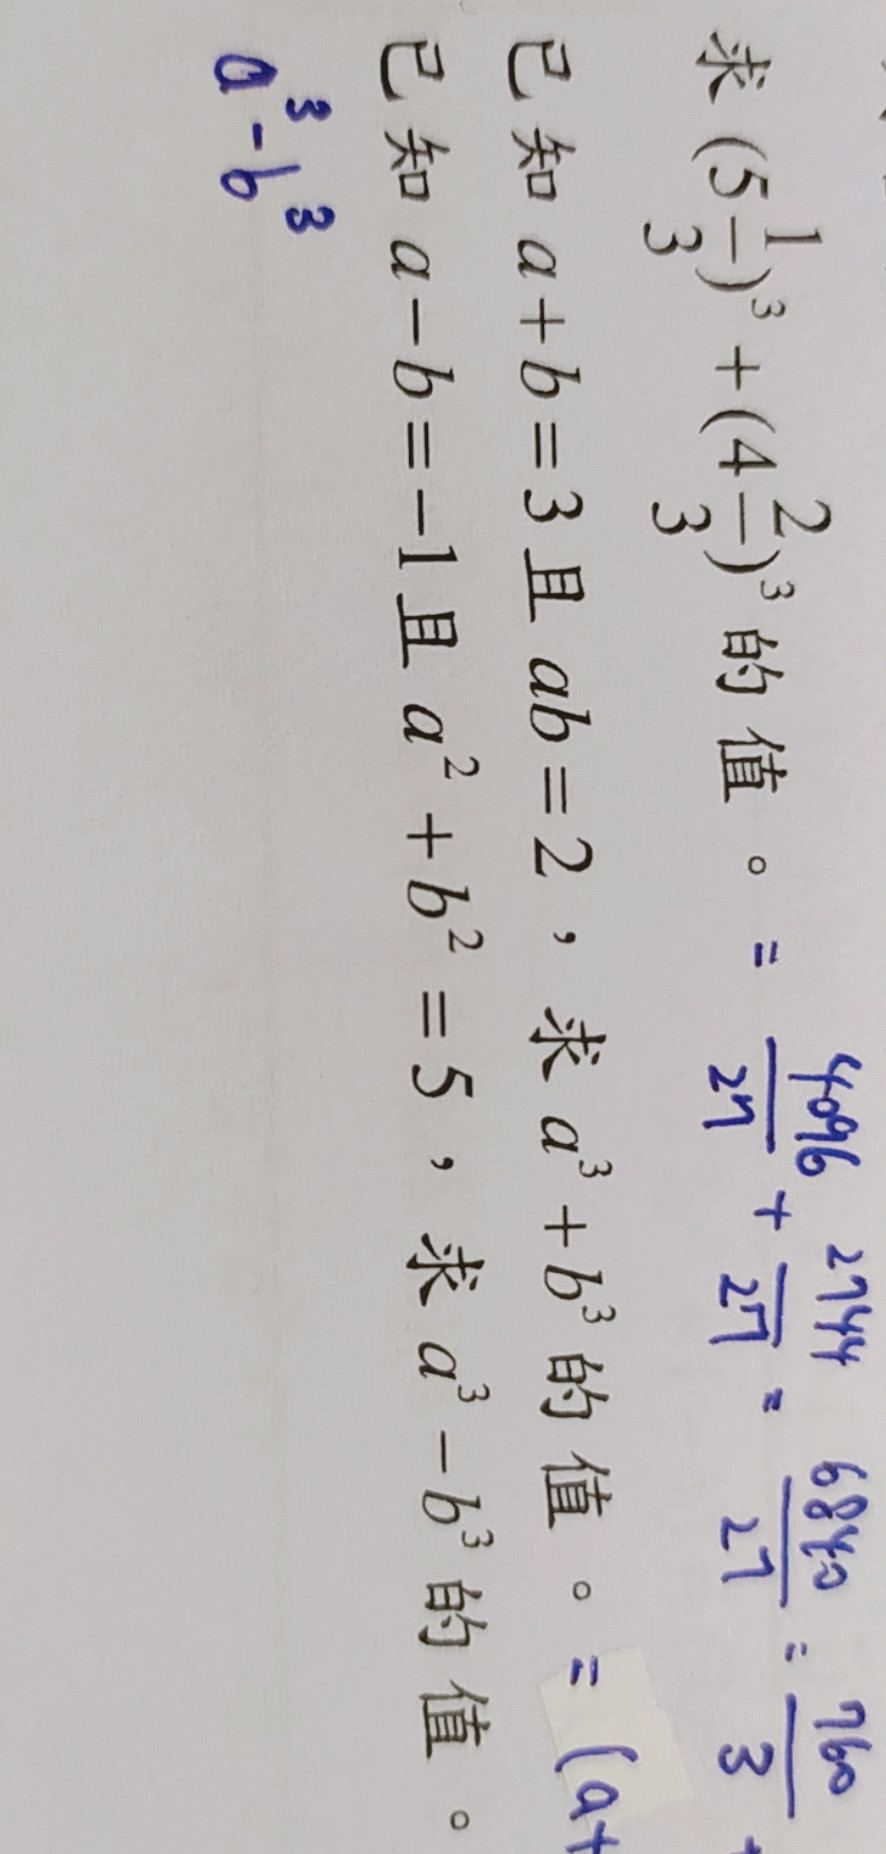 求 (5 1/3)³ + (4 2/3)³ 的 值 。 = 4096/27 + 2744/27 = 6840/27 = 760/3
已 知 a + b = 3 且 ab = 2 ， 求 a³ + b³ 的 值 。 = (a+
已 知 a − b = −1 且 a² + b² = 5 ， 求 a³ − b³ 的 值 。
a³ - b³